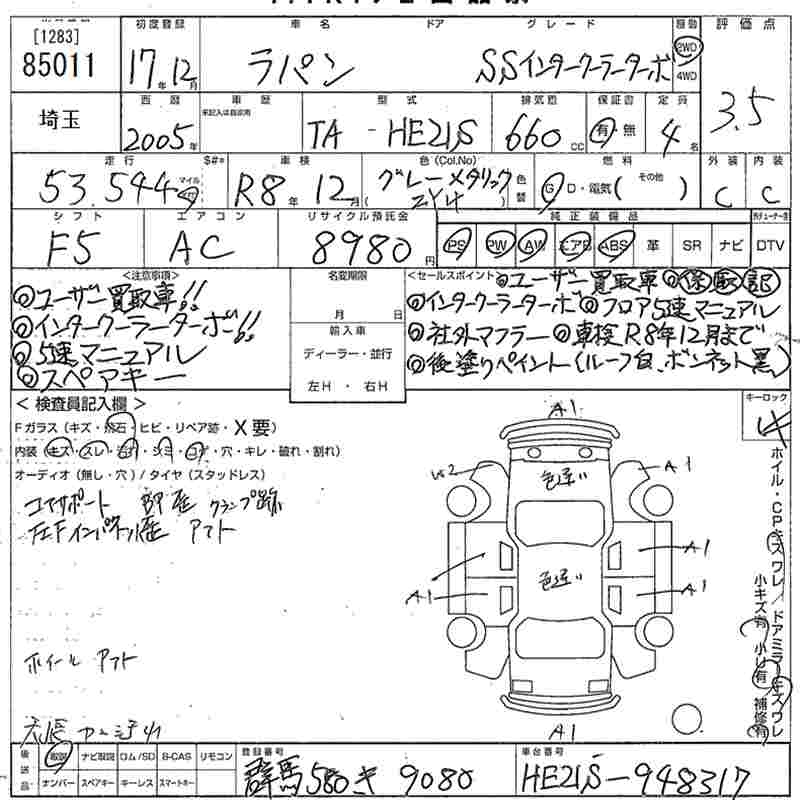 [1283]
85011
初度登録 車名 ドア グレード 駆動 評価点
17年12月 ラパン SSインタークーラーターボ 2WD 4WD 3.5
埼玉 西暦 車歴 型式 排気量 保証書 定員
2005年 未記入は自家用 TA-HE21S 660cc 有・無 4名
走行 S#* 車検 色(Col.No) 燃料 外装 内装
53,544 マイル R8年12月 グレーメタリック ZY4 色替 G・D・電気( その他 ) C C
シフト エアコン リサイクル預託金 純正装備品
F5 AC 8980円 PS PW AW エアB ABS 革 SR ナビ DTV
<注意事項>
◎ユーザー買取車!!
◎インタークーラーターボ!!
◎5速マニュアル
◎スペアキー
名変期限
月 日
輸入車
ディーラー・並行
左H・右H
<セールスポイント> ◎ユーザー買取車◎保取記
◎インタークーラーターボ◎フロア5速マニュアル
◎社外マフラー◎車検R8年12月まで
◎後塗りペイント(ルーフ白、ボンネット黒)
<検査員記入欄>
Fガラス(キズ・飛石・ヒビ・リペア跡・X要)
内装(キズ・スレ・汚れ・シミ・コゲ・穴・キレ・破れ・割れ)
オーディオ(無し・穴)/タイヤ(スタッドレス)
コアサポート 部 クランプ跡
ホイール アフト
キーロック
ホイール・CPキズワレ/ドアミラーキズワレ
小キズ有 小U有 補修有
A1
W2 色違い A1
A1 色違い A1
A1
A1
後送品 取説 ナビ取説 ロム/SD B-CAS リモコン
ナンバー スペアキー キーレス スマートキー
登録番号
群馬580き9080
車台番号
HE21S-948317